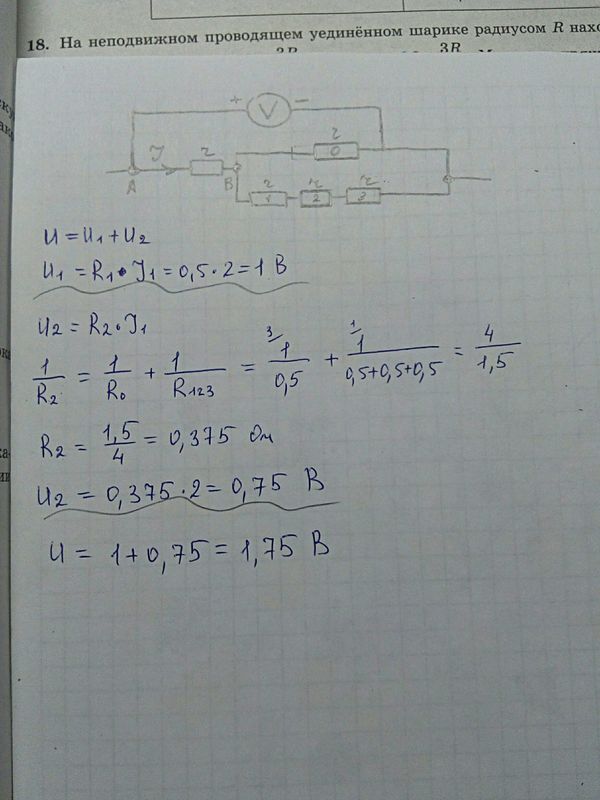 18. На неподвижном проводящем уединённом шарике радиусом R нахо
3R
+ V −
J r
r
0
A
B
r
1
r
2
r
3
U = U1 + U2
U1 = R1 • J1 = 0,5 · 2 = 1 В
U2 = R2 • J1
1/R2 = 1/R0 + 1/R123 = 3/ 1/0,5 + 1/ 1/0,5+0,5+0,5 = 4/1,5
R2 = 1,5/4 = 0,375 Ом
U2 = 0,375 · 2 = 0,75 В
U = 1 + 0,75 = 1,75 В